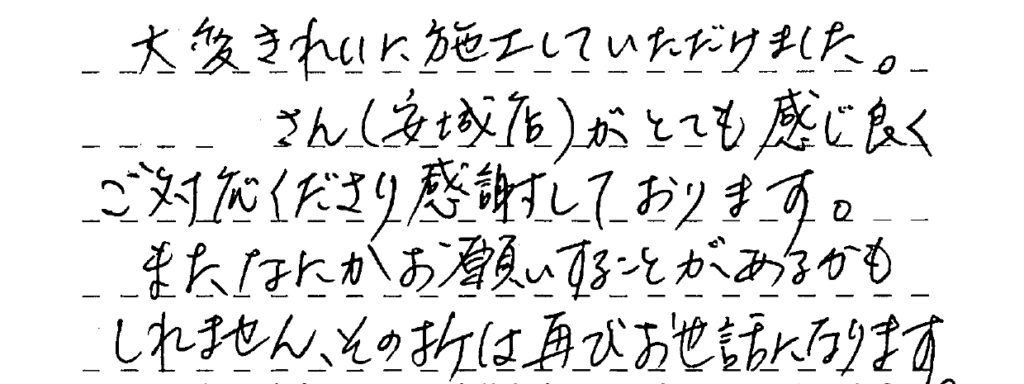 大変きれいに施工していただけました。
さん(安城店)がとても感じ良く
ご対応くださり感謝しております。
また、なにかお願いすることがあるかも
しれません、その折は再びお世話になります。